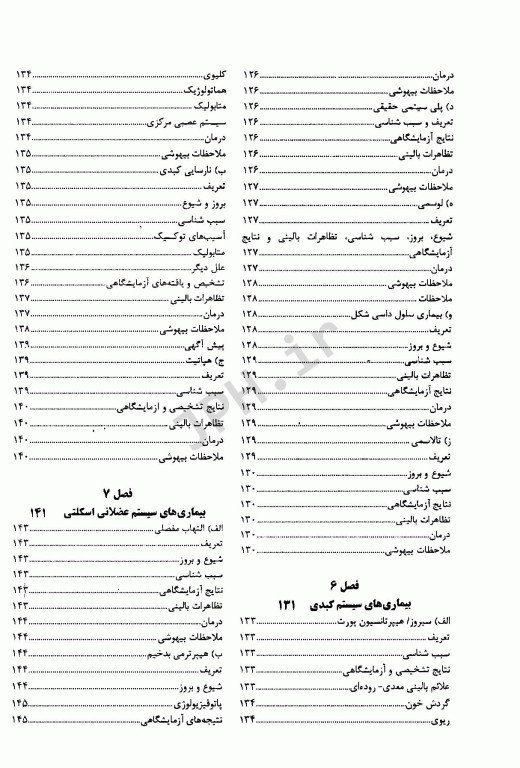 درمان ۱۲۶
ملاحظات بیهوشی ۱۲۶
د) پلی سیتمی حقیقی ۱۲۶
تعریف و سبب شناسی ۱۲۶
نتایج آزمایشگاهی ۱۲۶
تظاهرات بالینی ۱۲۶
درمان ۱۲۶
ملاحظات بیهوشی ۱۲۷
ه) لوسمی ۱۲۷
تعریف ۱۲۷
شیوع، بروز، سبب شناسی، تظاهرات بالینی و نتایج
آزمایشگاهی ۱۲۷
درمان ۱۲۷
ملاحظات بیهوشی ۱۲۸
ملاحظات ۱۲۸
و) بیماری سلول داسی شکل ۱۲۸
تعریف ۱۲۸
شیوع و بروز ۱۲۸
سبب شناسی ۱۲۹
تظاهرات بالینی ۱۲۹
نتایج آزمایشگاهی ۱۲۹
درمان ۱۲۹
ملاحظات بیهوشی ۱۲۹
ز) تالاسمی ۱۲۹
تعریف ۱۲۹
شیوع و بروز ۱۳۰
سبب شناسی ۱۳۰
نتایج آزمایشگاهی ۱۳۰
تظاهرات بالینی ۱۳۰
درمان ۱۳۰
ملاحظات بیهوشی ۱۳۰
فصل ۶
بیماری‌های سیستم کبدی ۱۳۱
الف) سیروز/ هیپرتانسیون پورت ۱۳۳
تعریف ۱۳۳
سبب شناسی ۱۳۳
نتایج تشخیصی و آزمایشگاهی ۱۳۳
علائم بالینی معدی- روده‌ای ۱۳۳
گردش خون ۱۳۴
ریوی ۱۳۴
کلیوی ۱۳۴
هماتولوژیک ۱۳۴
متابولیک ۱۳۴
سیستم عصبی مرکزی ۱۳۴
درمان ۱۳۴
ملاحظات بیهوشی ۱۳۵
ب) نارسایی کبدی ۱۳۵
تعریف ۱۳۵
بروز و شیوع ۱۳۵
سبب شناسی ۱۳۵
آسیب‌های توکسیک ۱۳۵
متابولیک ۱۳۵
علل دیگر ۱۳۶
تشخیص و یافته‌های آزمایشگاهی ۱۳۶
تظاهرات بالینی ۱۳۷
درمان ۱۳۷
ملاحظات بیهوشی ۱۳۸
پیش آگهی ۱۳۹
ج) هپاتیت ۱۳۹
تعریف ۱۳۹
سبب شناسی ۱۳۹
نتایج تشخیصی و آزمایشگاهی ۱۴۰
تظاهرات بالینی ۱۴۰
درمان ۱۴۰
ملاحظات بیهوشی ۱۴۰
فصل ۷
بیماری‌های سیستم عضلانی اسکلتی ۱۴۱
الف) التهاب مفصلی ۱۴۳
تعریف ۱۴۳
شیوع و بروز ۱۴۳
سبب شناسی ۱۴۳
نتایج آزمایشگاهی ۱۴۳
تظاهرات بالینی ۱۴۳
درمان ۱۴۴
ملاحظات بیهوشی ۱۴۴
ب) هیپرترمی بدخیم ۱۴۴
تعریف ۱۴۴
شیوع و بروز ۱۴۴
پاتوفیزیولوژی ۱۴۵
نتیجه‌های آزمایشگاهی ۱۴۵
JPH.ir